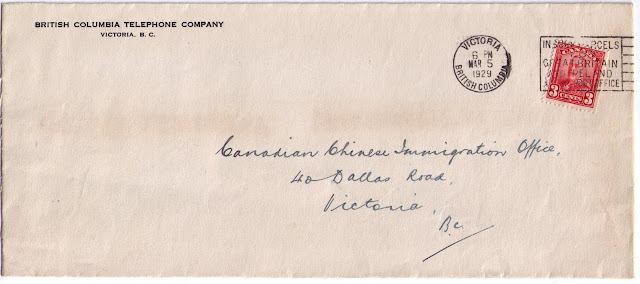 BRITISH COLUMBIA TELEPHONE COMPANY
VICTORIA, B. C.
VICTORIA
6 PM
MAR 5
1929
BRITISH COLUMBIA
GREAT BRITAIN
OFFICE
3 3
Canadian Chinese Immigration Office,
40 Dallas Road,
Victoria,
B.C.